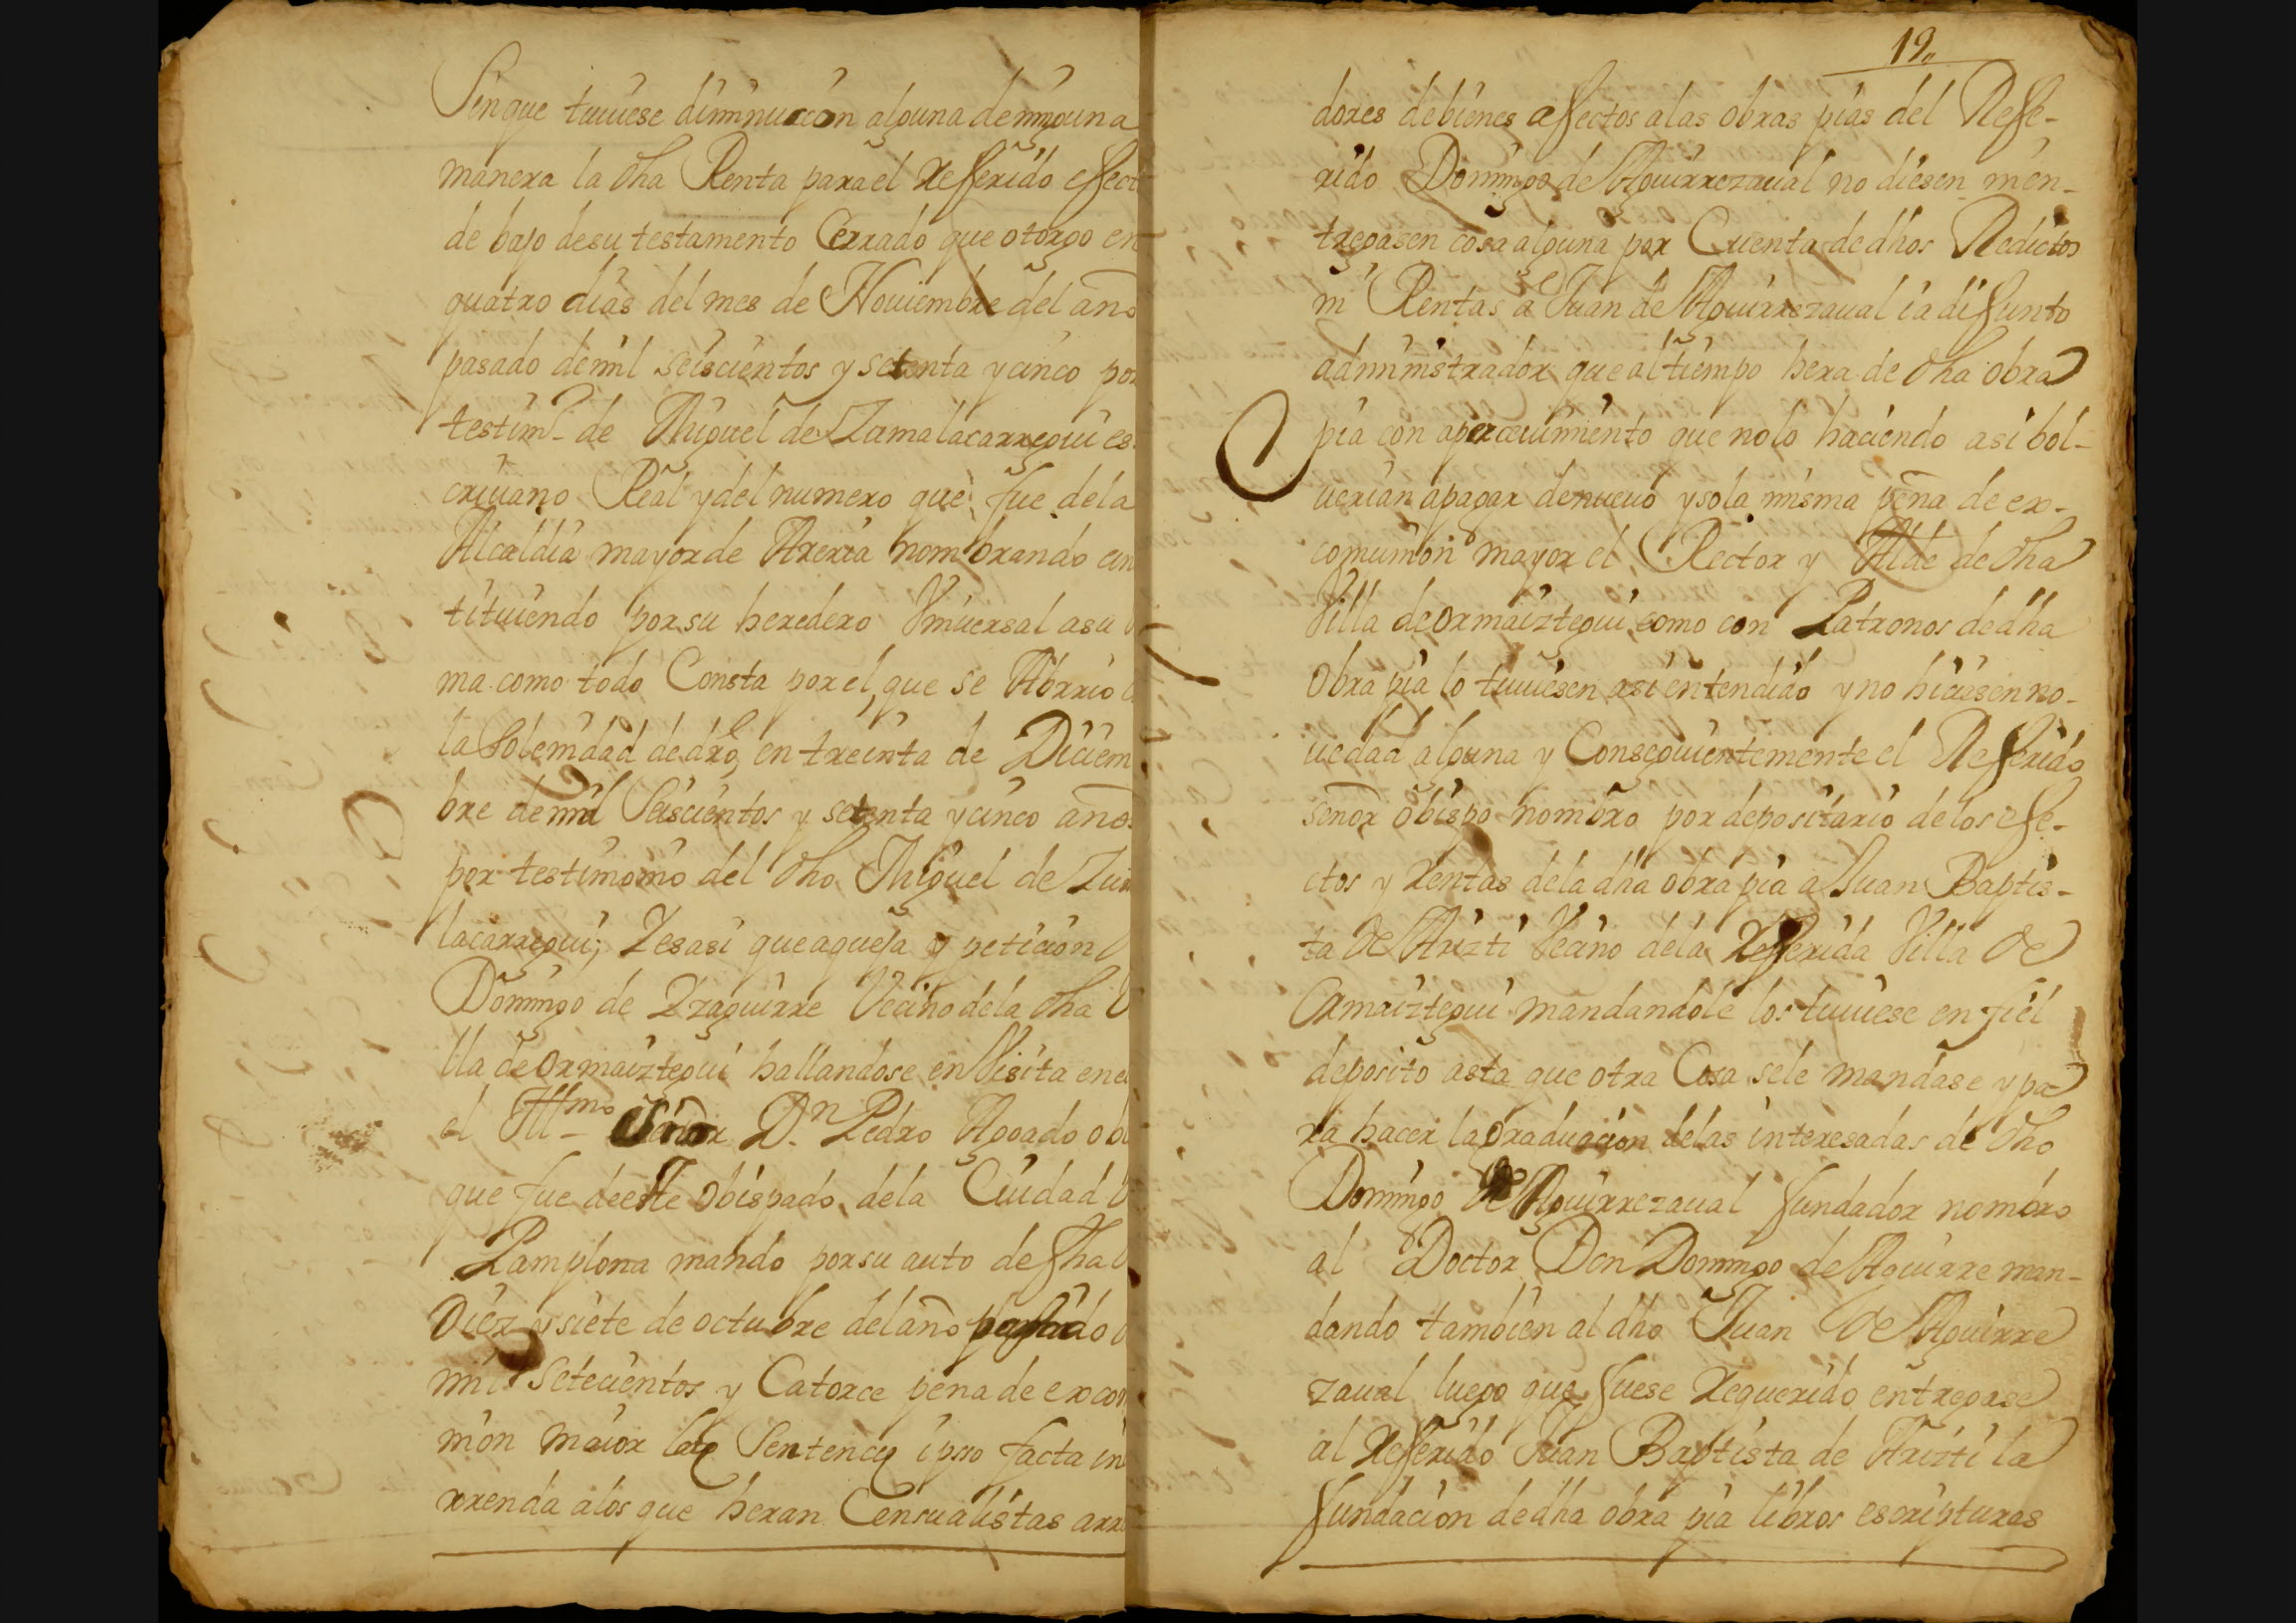 Sinque tuuiese diminucion alguna deninguna
manera la dha Renta parael Refferido effect
de bajo desu testamento Cerrado que otorgo en
quatro dias del mes de Nouiembre del año
pasado demil seiscientos y setenta y cinco por
testim.º de Miguel de Zumalacarregui es
criuano Real y del numero que fue dela
Alcaldia mayor de Areria nombrando e ins
tituiendo por su heredero Vniuersal asu
ma como todo Consta por el, que se Abrrio
la Solemidad de dro, en treinta de Diciem
bre demil Seiscientos y setenta y cinco años
por testimonio del dho Miguel de Zum
lacarregui; Y es asi que aqueja y peticion
Domingo de Yzaguirre Vecino dela dha
lla de ormaiztegui hallandose en Visita enel
el Ill.mo Señor D.n Pedro Aguado ob
que fue deeste Obispado dela Ciudad
Pamplona mando por su auto de fha
Diez y siete de octubre del año passado
mil Setecientos y Catorce pena de excom
mon maior late Sentencie ipso facta in
rrenda alos que heran Censualistas arr
19.
dores debienes affectos alas obras pias del Reffe-
rido Domingo de Aguirrezaual no diesen nien-
tregasen cosa alguna por Cuenta de dhos Redictos
ni Rentas a Juan de Aguirrezaual ia difunto
administrador que al tiempo hera de dha obra
pia con aperceuimiento que nolo haciendo asi bol-
uerian apagar denueuo y sola misma pena de ex-
comunion mayor el Rector y Alde de dha
Villa de ormaiztegui como con Patronos de dha
Obra pia lo tuuiesen asi entendido y no hiciesen no-
uedad alguna y Conseguientemente el Refferido
señor obispo nombro por depositario de los effe-
ctos y Rentas dela dha obra pia a Juan Baptis-
ta de Arizti Vecino dela Refferida Villa de
Ormaiztegui mandandole los tuuiese en fiel
deposito asta que otra Cosa sele mandase y pa
ra hacer la graduacion delas interesadas de dho
Domingo de Aguirrezaual fundador nombro
al Doctor Don Domingo de Aguirre man-
dando tambien al dho Juan de Aguirre
zaual luego que fuese Requerido entregase
al Refferido Juan Baptista de Arizti la
fundacion de dha obra pia libros escripturas